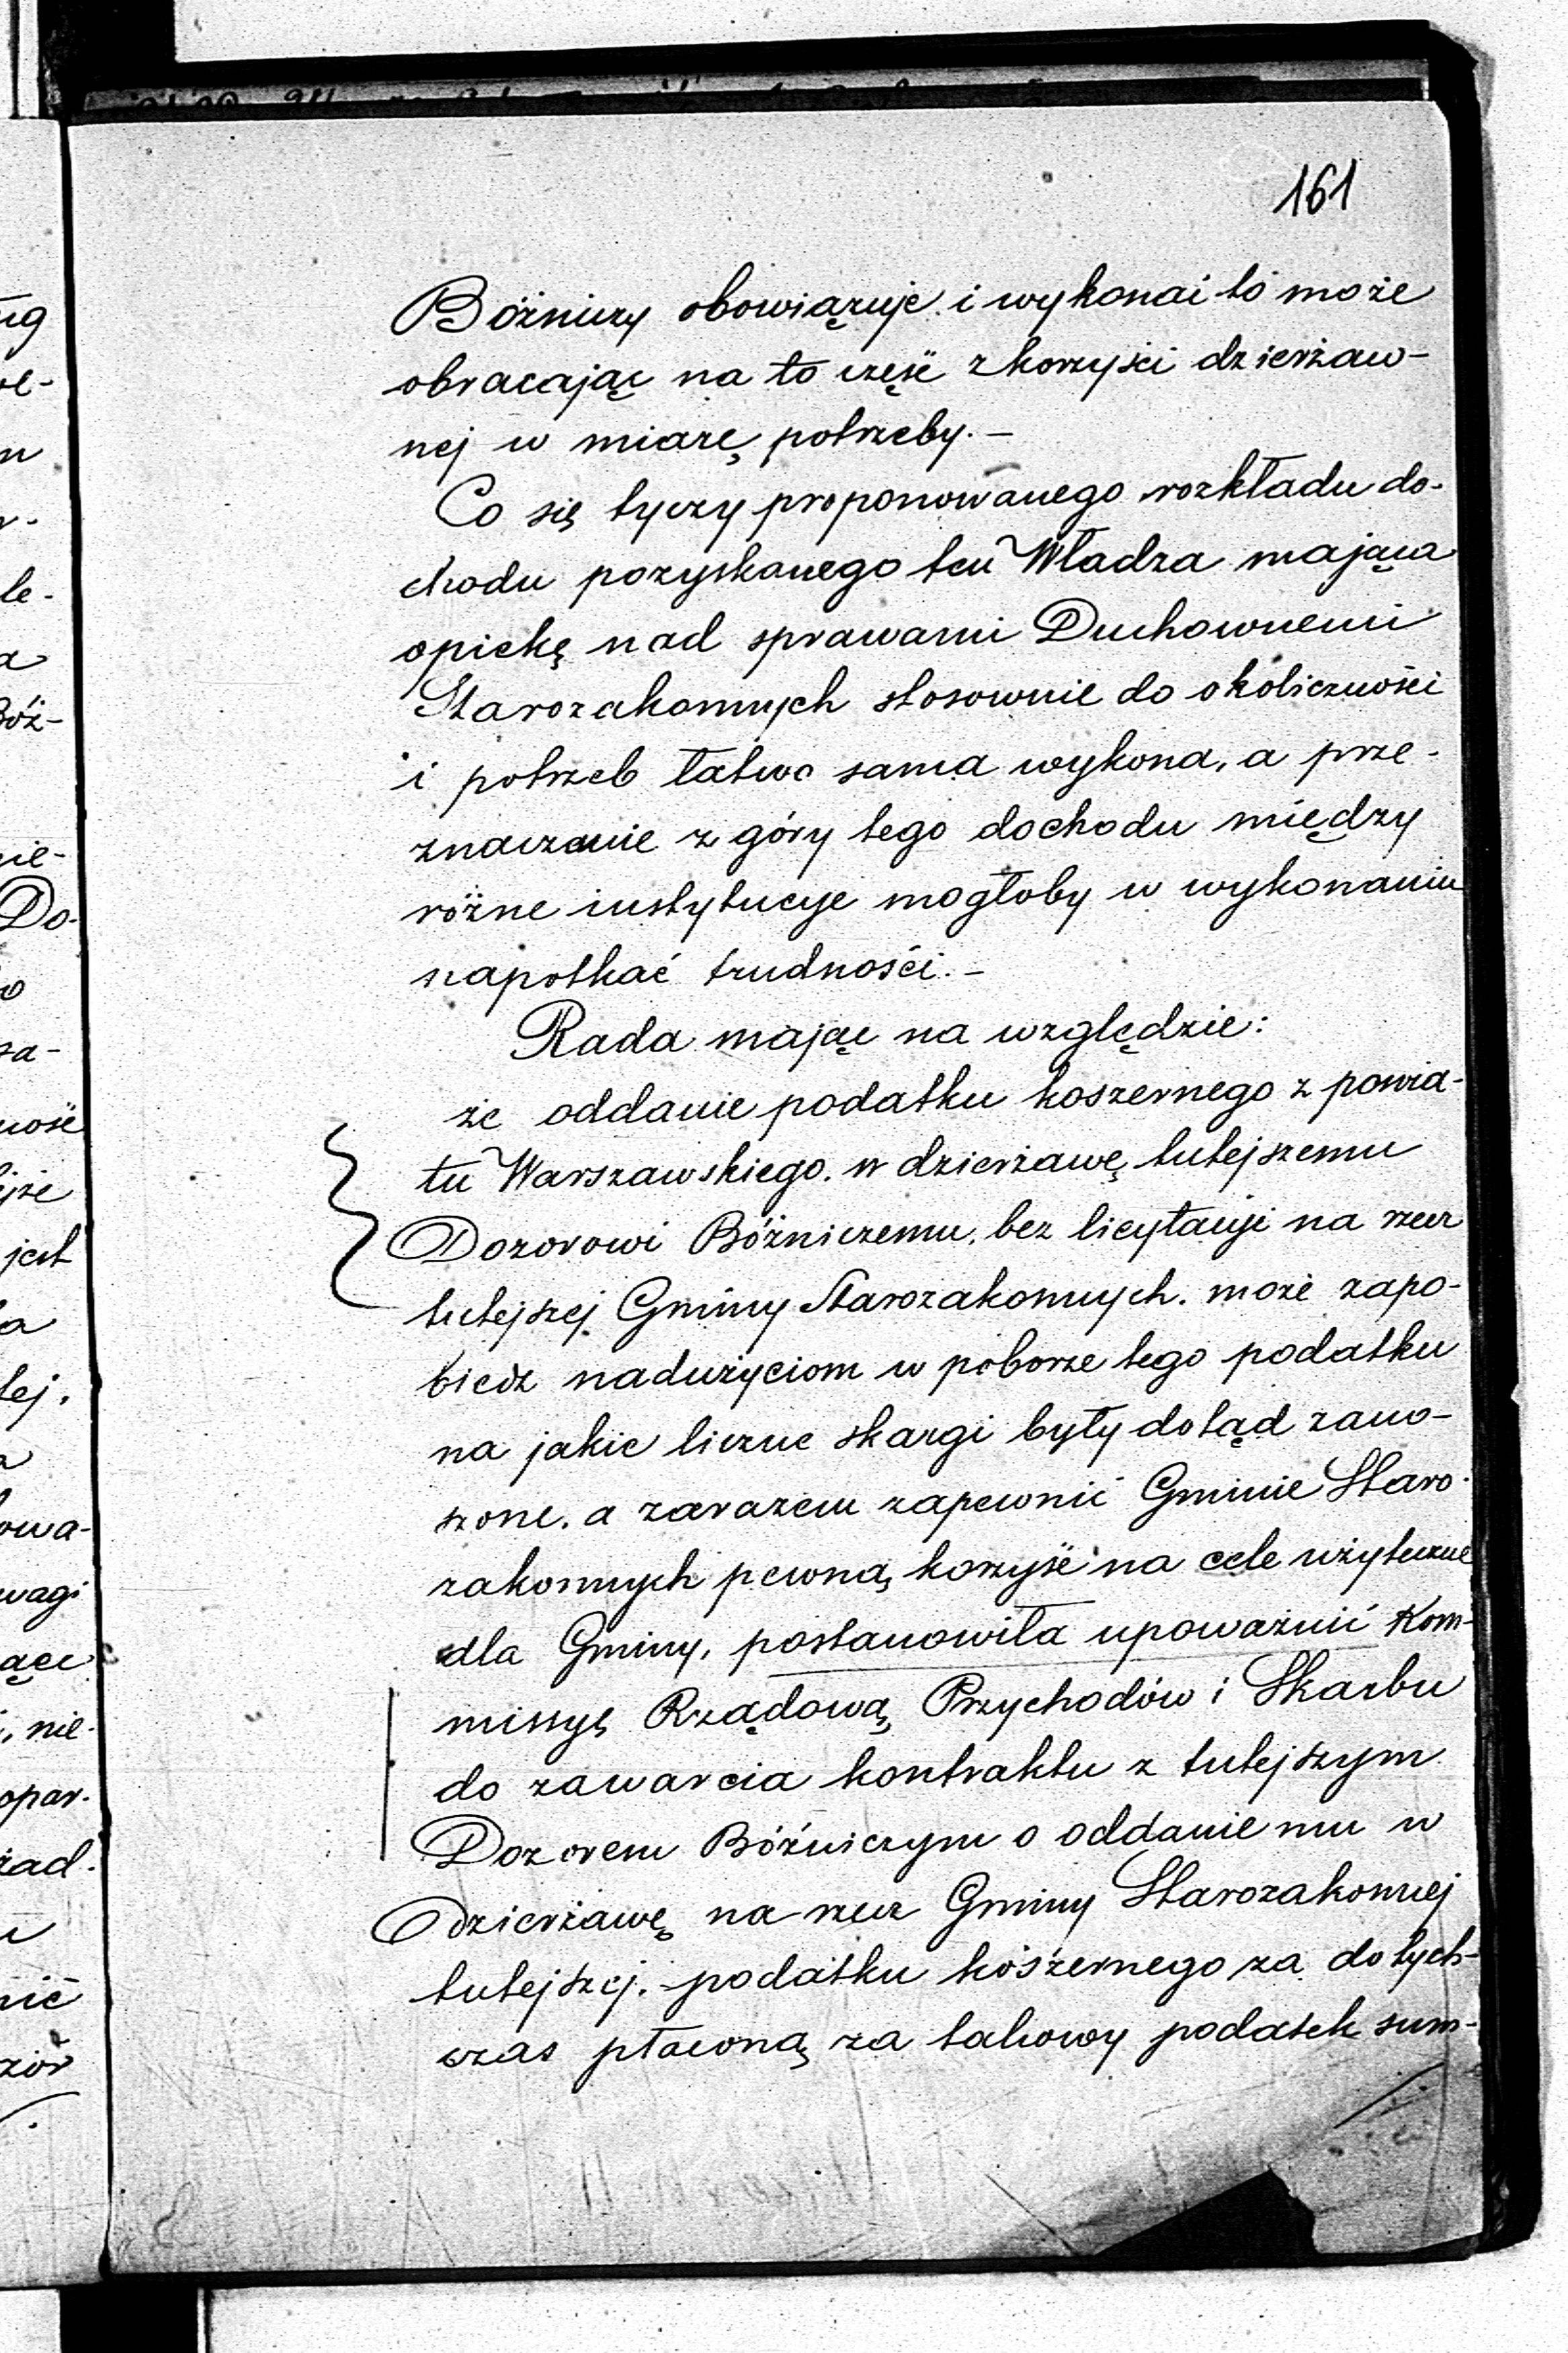 161
Bóżniczy obowiązuje i wykonać to może
obracając na to część z korzyści dzierżaw-
nej w miarę potrzeby. —
Co się tyczy proponowanego rozkładu do-
chodu pozyskanego ten Władza mająca
opiekę nad sprawami Duchownemi
Starozakonnych stosownie do okoliczności
i potrzeb łatwo sama wykona, a prze-
znaczenie z góry tego dochodu między
różne instytucye mogłoby w wykonaniu
napotkać trudności. —
Rada mając na względzie:
że oddanie podatku koszernego z powia-
tu Warszawskiego w dzierżawę tutejszemu
Dozorowi Bóżniczemu, bez licytacyi na rzecz
tutejszej Gminy Starozakonnych. może zapo-
biedz nadużyciom w poborze tego podatku
na jakie liczne skargi były dotąd zano-
szone, a zarazem zapewnić Gminie Staro-
zakonnych pewną korzyść na cele użyteczne
dla Gminy, postanowiła upoważnić Kom-
missyę Rządową Przychodów i Skarbu
do zawarcia kontraktu z tutejszym
Dozorem Bóżniczym o oddanie mu w
dzierżawę na rzecz Gminy Starozakonnej
tutejszej. podatku koszernego za dotych-
czas płaconą za takowy podatek sum-
ug
n
le-
a
Bóż-
nie-
Do-
jest
a
tej.
owa-
wagi
nie-
opar-
żad-
nić
zór